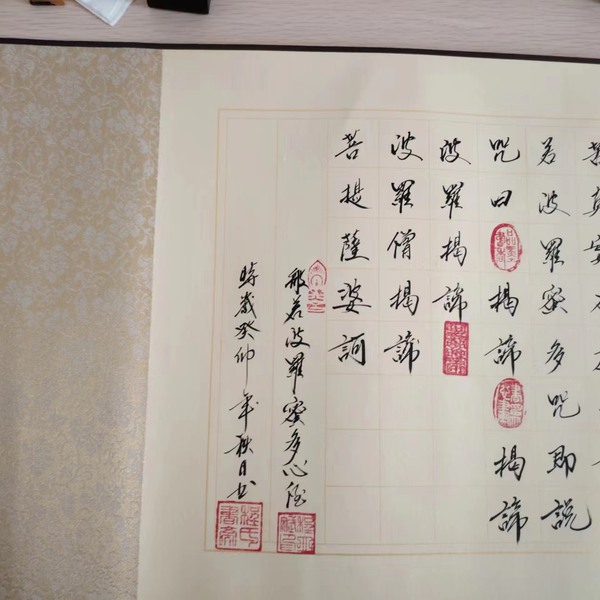 真實不
若波羅蜜多咒即說
咒曰揭諦揭諦
波羅揭諦
波羅僧揭諦
菩提薩婆訶
般若波羅蜜多心経
時歲癸卯年秋日书